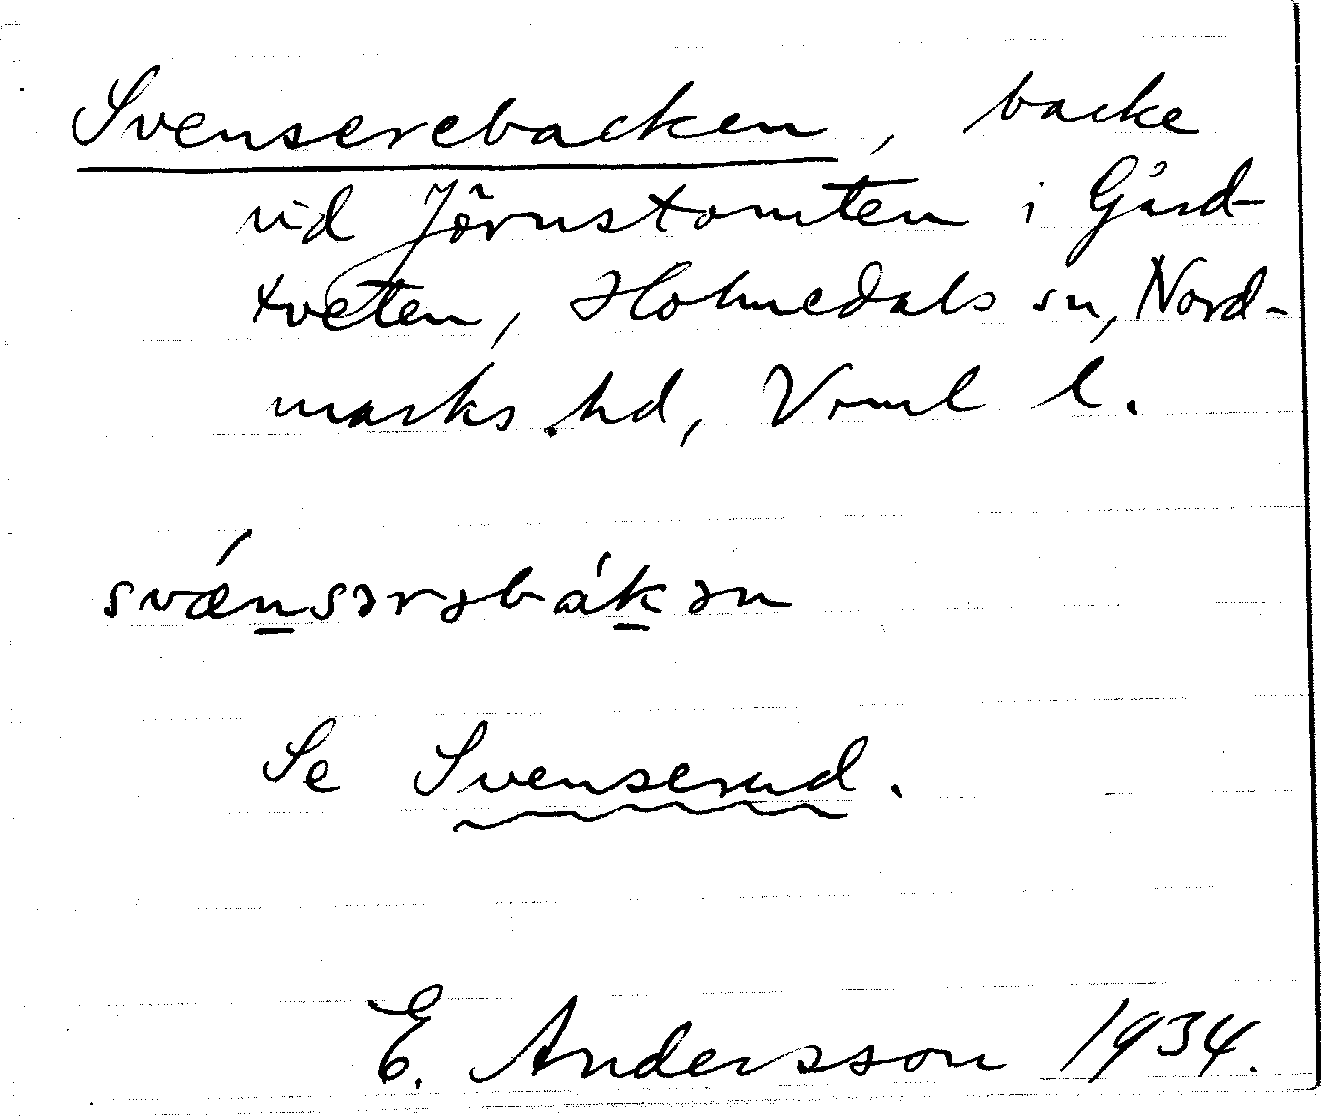 Svenserebacken, backe
vid Jörnstomten i Gård-
tveten, Holmedals sn, Nord-
marks hd, Vrml l.
svǽnsərəbákən
Se Svenserud.
E. Andersson 1934.